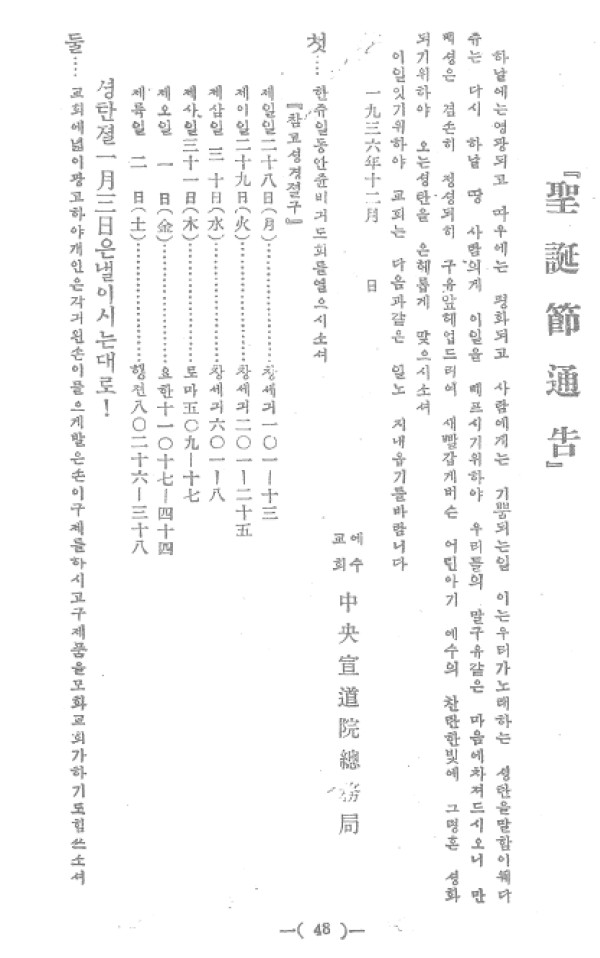 『聖誕節通告』
하날에는영광되고 따우에는 평화되고 사람에게는 기쁨되는일 이는우리가노래하는 셩탄을말함이웨다
쥬는 다시 하날 땅 사람의게 이일을 베프시기위하야 우리들의 말구유같은 마음에차져드시오니 만
백셩은 겸손히 정셩되히 구유앞헤업드려 새빨갑게버슨 어린아기 예수의 찬란한빛에 그명혼 셩화
되기위하야 오는셩탄을 은혜롭게 맞으시소셔
이일잇기위하야 교회는 다음과같은 일노 지내옵기를바람니다
一九三六年十二月 日
예수교회 中央宣道院總務局
첫…… 한쥬일동안쥰비긔도회를열으시소셔
『참고셩경졀구』
제일일二十八日(月)……………창세긔一〇一—十三
제이일二十九日(火)……………창세긔二〇一—二十五
제삼일 三十日(水)……………창세긔六〇一—八
제사일三十一日(木)……………로마五〇九—十七
제오일 一 日(金)……………요한十一〇十七—四十四
제륙일 二 日(土)……………행젼八〇二十六—三十八
셩탄졀一月三日은낼이시는대로!
둘…… 교회에넓이광고하야개인은각거왼손이몰으게발은손이구제를하시고구제품을모화교회가하기도힘쓰소셔
—( 48 )—